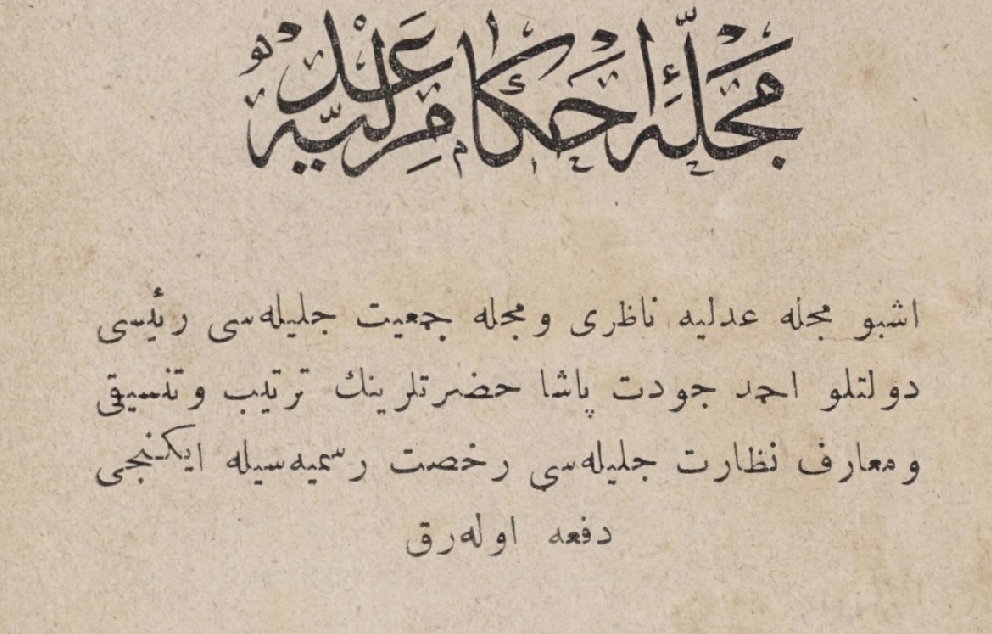 مجلۀ احكام عدليه
اشبو مجله عدليه ناظرى و مجله جمعيت جليله‌سى رئيسى
دولتلو احمد جودت پاشا حضرتلرينك ترتيب و تنسيقى
و معارف نظارت جليله‌سى رخصت رسميه‌سيله ايكنجى
دفعه اوله‌رق